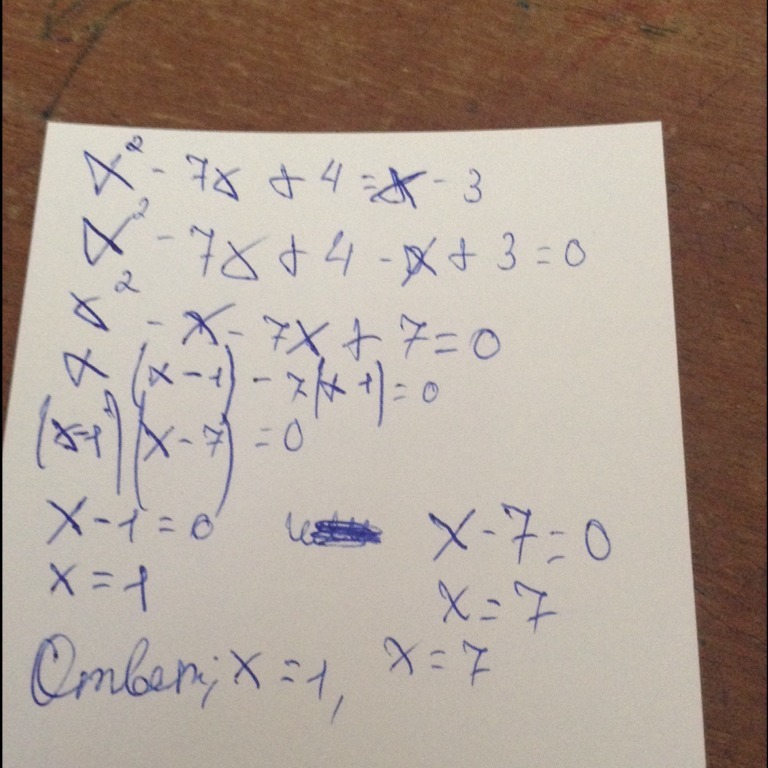 x² - 7x + 4 = x - 3
x² - 7x + 4 - x + 3 = 0
x² - x - 7x + 7 = 0
x (x - 1) - 7(x - 1) = 0
(x - 1) (x - 7) = 0
x - 1 = 0 x - 7 = 0
x = 1 x = 7
Ответ; x = 1, x = 7